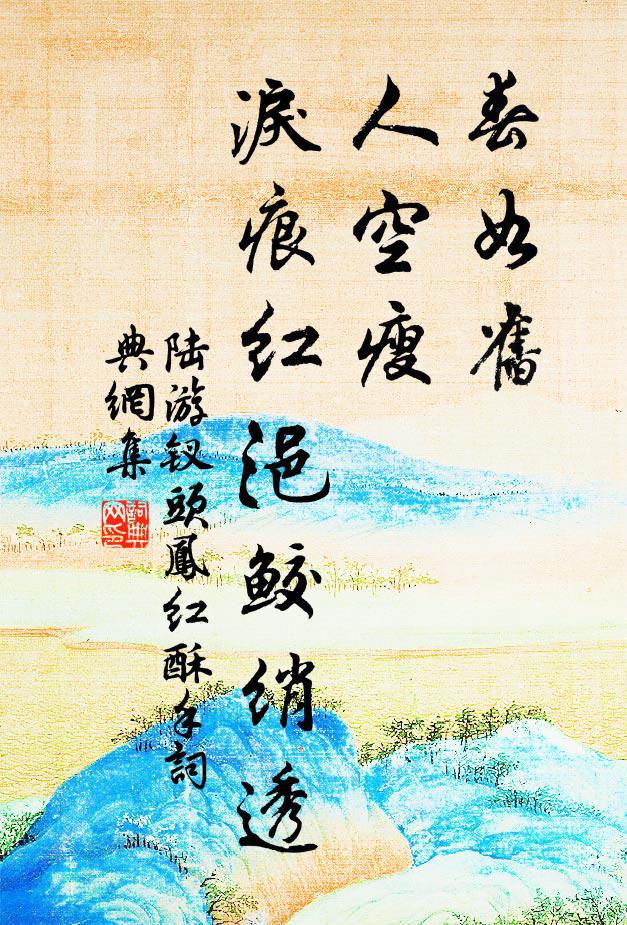 春如舊
人空瘦
淚痕紅浥鮫綃透
陸游釵頭鳳紅酥手詞
典網集
詞典網印